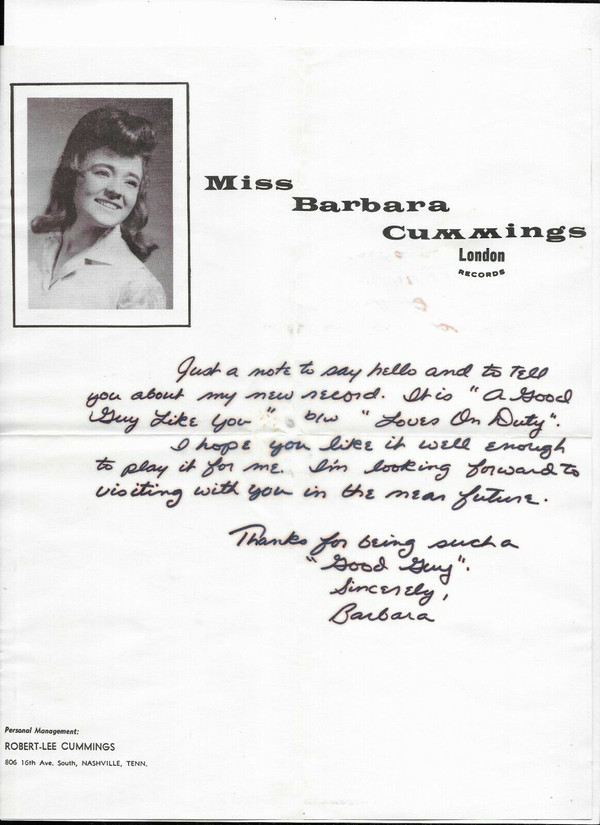 Miss
Barbara
Cummings
London
RECORDS
Just a note to say hello and to tell
you about my new record. It is "A Good
Guy Like You" b/w "Loves On Duty".
I hope you like it well enough
to play it for me. I'm looking forward to
visiting with you in the near future.
Thanks for being such a
"Good Guy".
Sincerely,
Barbara
Personal Management:
ROBERT-LEE CUMMINGS
806 16th Ave. South, NASHVILLE, TENN.